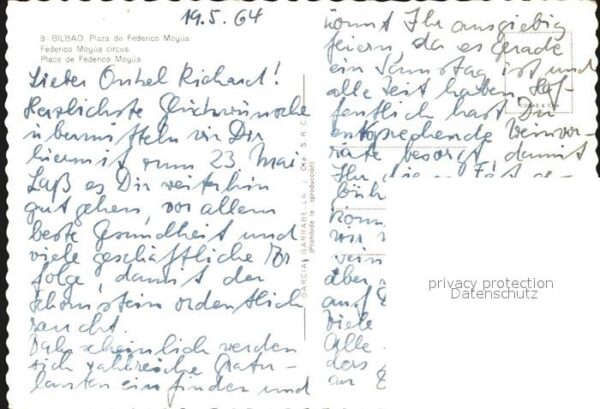 19.5.64
8 - BILBAO. Plaza de Federico Moyúa.
Federico Moyúa circus.
Place de Federico Moyúa
Lieber Onkel Richard!
Herzlichste Glückwünsche
übermitteln wir Dir
hiermit zum 23. Mai
Laß es Dir weiterhin
gut gehen, vor allem
beste Gesundheit und
viele geschäftliche Er
folge, damit der
Schornstein ordentlich
raucht.
Wahrscheinlich werden
sich zahlreiche Gratu-
lanten einfinden und
GARCIA GARRABELLA
(Prohibida la reproducción)
könnt Ihr ausgiebig
feiern, da es gerade
ein Samstag ist und
alle Zeit haben. Hof-
fentlich hast Du
entsprechende Weinvor-
räte besorgt, damit
Ihr
könn
wir
wein
aber
auf
Viele
Alle
das
an
privacy protection
Datenschutz